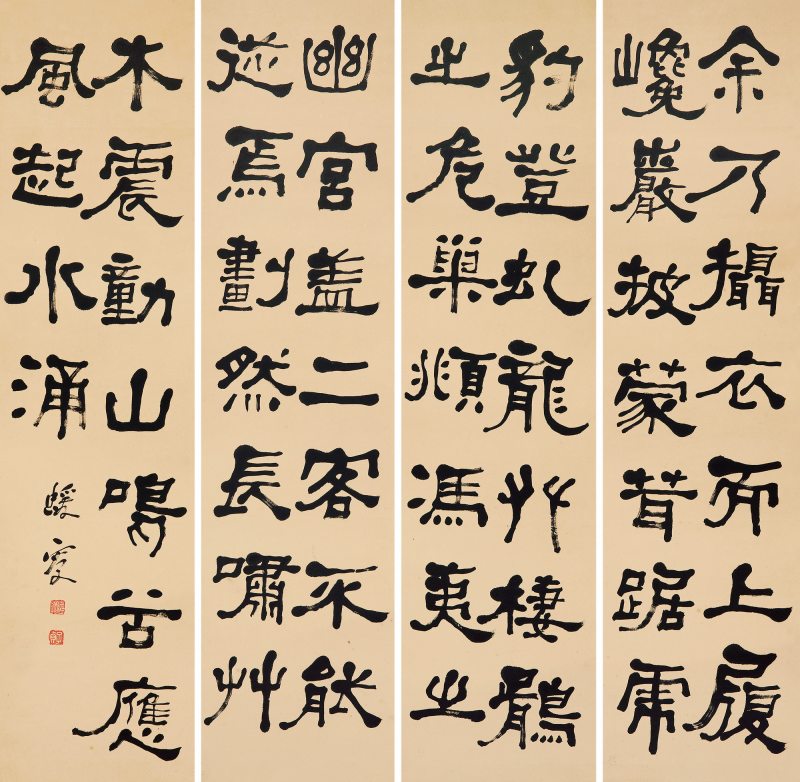 余乃攝衣而上履
巉巖披蒙茸踞虎
豹登虬龍𠬜棲鶻
之危巢頫馮夷之
幽宮盖二客不能
從焉劃然長嘯艸
木震動山鳴谷應
風起水涌
蝯叟